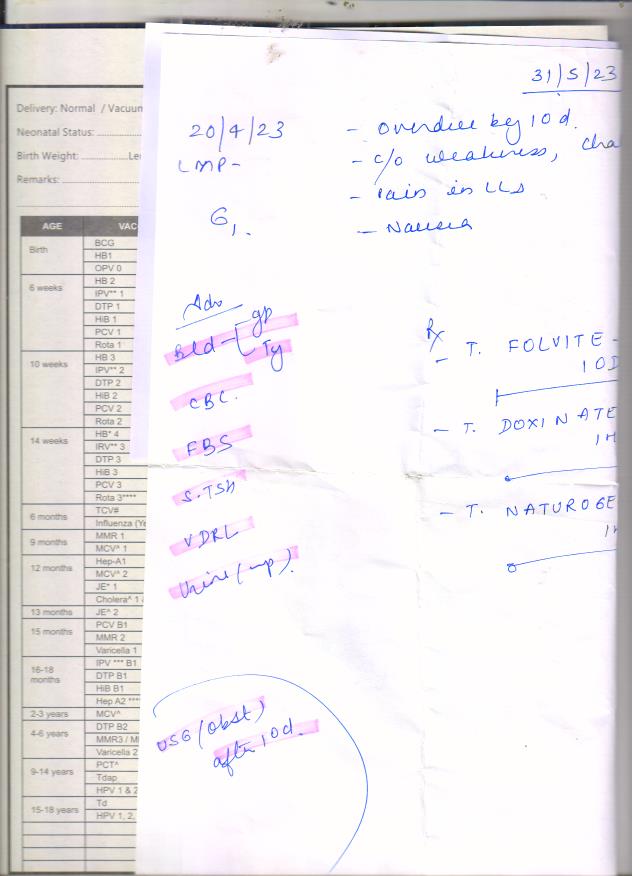 31/5/23
20/4/23
LMP-
G1.
- overdue by 10 d.
- c/o weakness,
- Pain in LLS
- Nausea
Adv
Bld - [ gp
Ty
CBC.
FBS
S.TSH
VDRL
Urine (
USG (obst)
after 10 d.
Rx
- T. FOLVITE -
1OD
- T. DOXINATE
1H
- T. NATUROGE
1H
Delivery: Normal / Vacuum
Neonatal Status:
Birth Weight:
Remarks:
AGE VAC
Birth BCG
HB1
OPV 0
6 weeks HB 2
IPV** 1
DTP 1
HiB 1
PCV 1
Rota 1
10 weeks HB 3
IPV** 2
DTP 2
HiB 2
PCV 2
Rota 2
14 weeks HB* 4
IRV** 3
DTP 3
HiB 3
PCV 3
Rota 3****
6 months TCV#
Influenza (Ye
9 months MMR 1
MCV^ 1
12 months Hep-A1
MCV^ 2
JE* 1
Cholera^ 1
13 months JE^ 2
15 months PCV B1
MMR 2
Varicella 1
16-18 months IPV *** B1
DTP B1
HiB B1
Hep A2 ****
2-3 years MCV^
4-6 years DTP B2
MMR3 / M
Varicella 2
9-14 years PCT^
Tdap
HPV 1 & 2
15-18 years Td
HPV 1, 2,